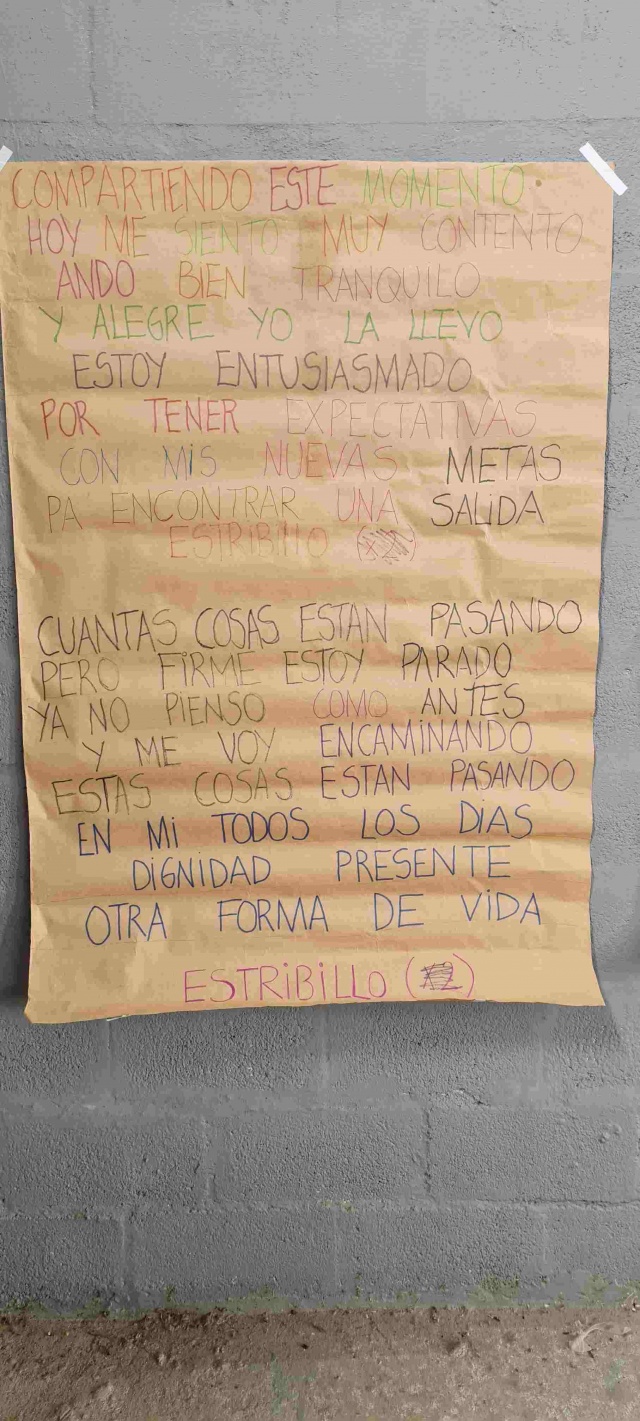 COMPARTIENDO ESTE MOMENTO
HOY ME SIENTO MUY CONTENTO
ANDO BIEN TRANQUILO
Y ALEGRE YO LA LLEVO
ESTOY ENTUSIASMADO
POR TENER EXPECTATIVAS
CON MiS NUEVAS METAS
PA ENCONTRAR UNA SALiDA
ESTRIBILLO (X2)
CUANTAS COSAS ESTAN PASANDO
PERO FIRME ESTOY PARADO
YA NO PIENSO COMO ANTES
Y ME VOY ENCAMINANDO
ESTAS COSAS ESTAN PASANDO
EN Mi TODOS LOS DiAS
DiGNiDAD PRESENTE
OTRA FORMA DE ViDA
ESTRiBiLLO